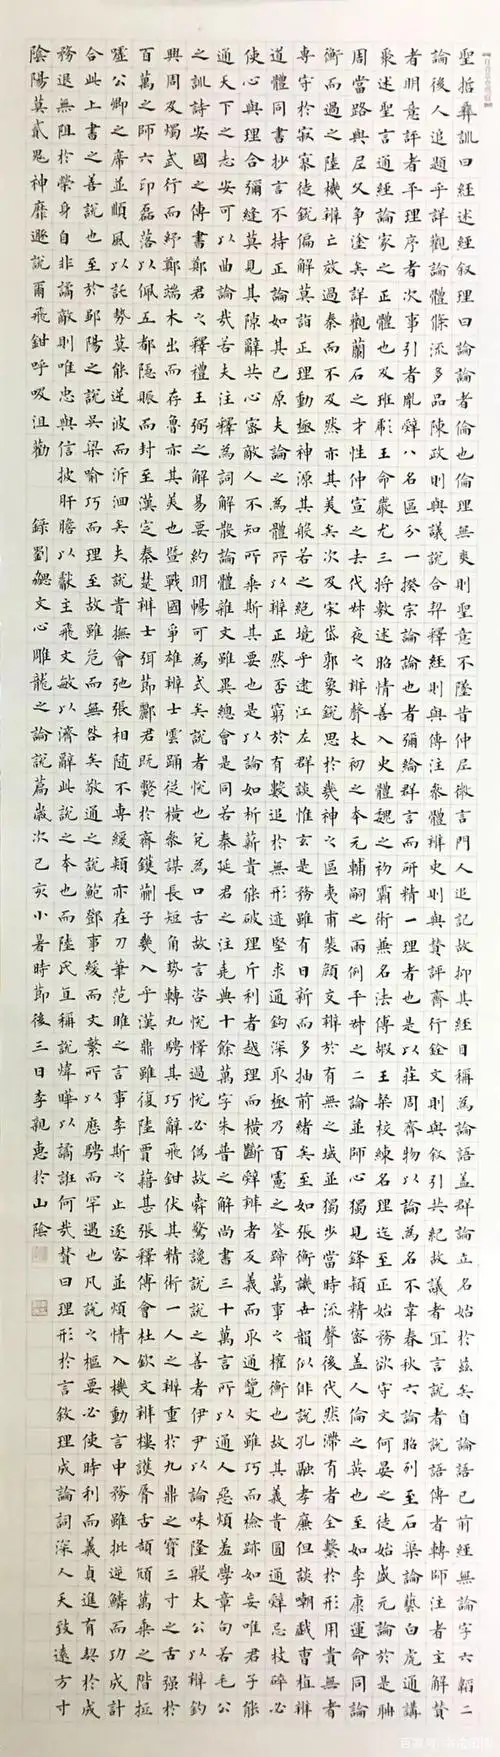 聖哲彝訓曰經述經敘理曰論論者倫也倫理無爽則聖意不墜昔仲尼微言門人追記故抑其經目稱為論語蓋群論立名始於茲矣自論語已前經無論字六韜二
論後人追題乎詳觀論體條流多品陳政則與議說合契釋經則與傳注參體辨史則與贊評齊行銓文則與敘引共紀故議者宜言說者說語傳者轉師注者主解贊
者明意評者平理序者次事引者胤辭八名區分一揆宗論論也者彌綸群言而研精一理者也是以莊周齊物以論為名不韋春秋六論昭列至石渠論藝白虎通講
聚述聖言通經論家之正體也及班彪王命嚴尤三將敷述昭情善入史體魏之初霸術兼名法傅嘏王粲校練名理迄至正始務欲守文何晏之徒始盛元論於是聃
周當路與尼父爭塗矣詳觀蘭石之才性仲宣之去代叔夜之辨聲太初之本元輔嗣之兩例平叔之二論並師心獨見鋒穎精密蓋人倫之英也至如李康運命同論
衡而過之陸機辨亡效過秦而不及然亦其美矣次及宋岱郭象銳思於幾神之區夷甫裴頠交辨於有無之域並獨步當時流聲後代然滯有者全繫於形用貴無者
專守於寂寥徒銳偏解莫詣正理動極神源其般若之絕境乎逮江左群談惟玄是務雖有日新而多抽前緒矣至如張衡譏世韻似俳說孔融孝廉但談嘲戲曹植辨
道體同書抄言不持正論如其已原夫論之為體所以辨正然否窮於有數追於無形迹堅求通鉤深取極乃百慮之筌蹄萬事之權衡也故其義貴圓通辭忌枝碎必
使心與理合彌縫莫見其隙辭共心密敵人不知所乘斯其要也是以論如析薪貴能破理斤利者越理而橫斷辭辨者反義而取通覽文雖巧而檢跡如妄唯君子能
通天下之志安可以曲論哉若夫注釋為詞解散論體雜文雖異總會是同若秦延君之注堯典十餘萬字朱普之解尚書三十萬言所以通人惡煩羞學章句若毛公
之訓詩安國之傳書鄭君之釋禮王弼之解易要約明暢可為式矣說者悅也兌為口舌故言咨悅懌過悅必偽故舜驚讒說說之善者伊尹以論味隆殷太公以辨釣
興周及燭武行而紓鄭端木出而存魯亦其美也暨戰國爭雄辨士雲踊從橫參謀長短角勢轉丸騁其巧辭飛鉗伏其精術一人之辨重於九鼎之寶三寸之舌強於
百萬之師六印磊落以佩五都隱賑而封至漢定秦楚辨士弭節酈君既斃於齊鑊蒯子幾入乎漢鼎雖復陸賈藉甚張釋傅會杜欽文辨樓護脣舌頡頏萬乘之階抵
噓公卿之席並順風以託勢莫能逆波而泝洄矣夫說貴撫會弛張相隨不專緩頰亦在刀筆范雎之言事李斯之止逐客並煩情入機動言中務雖批逆鱗而功成計
合此上書之善說也至於鄒陽之說吳梁喻巧而理至故雖危而無咎矣敬通之說鮑鄧事緩而文繁所以歷騁而罕遇也凡說之樞要必使時利而義貞進有契於成
務退無阻於榮身自非譎敵則唯忠與信披肝膽以獻主飛文敏以濟辭此說之本也而陸氏直稱說煒曄以譎誑何哉贊曰理形於言敘理成論詞深人天致遠方寸
陰陽莫貳鬼神靡遯說爾飛鉗呼吸沮勸 錄劉勰文心雕龍之論說篇歲次己亥小暑時節後三日李親惠於山陰